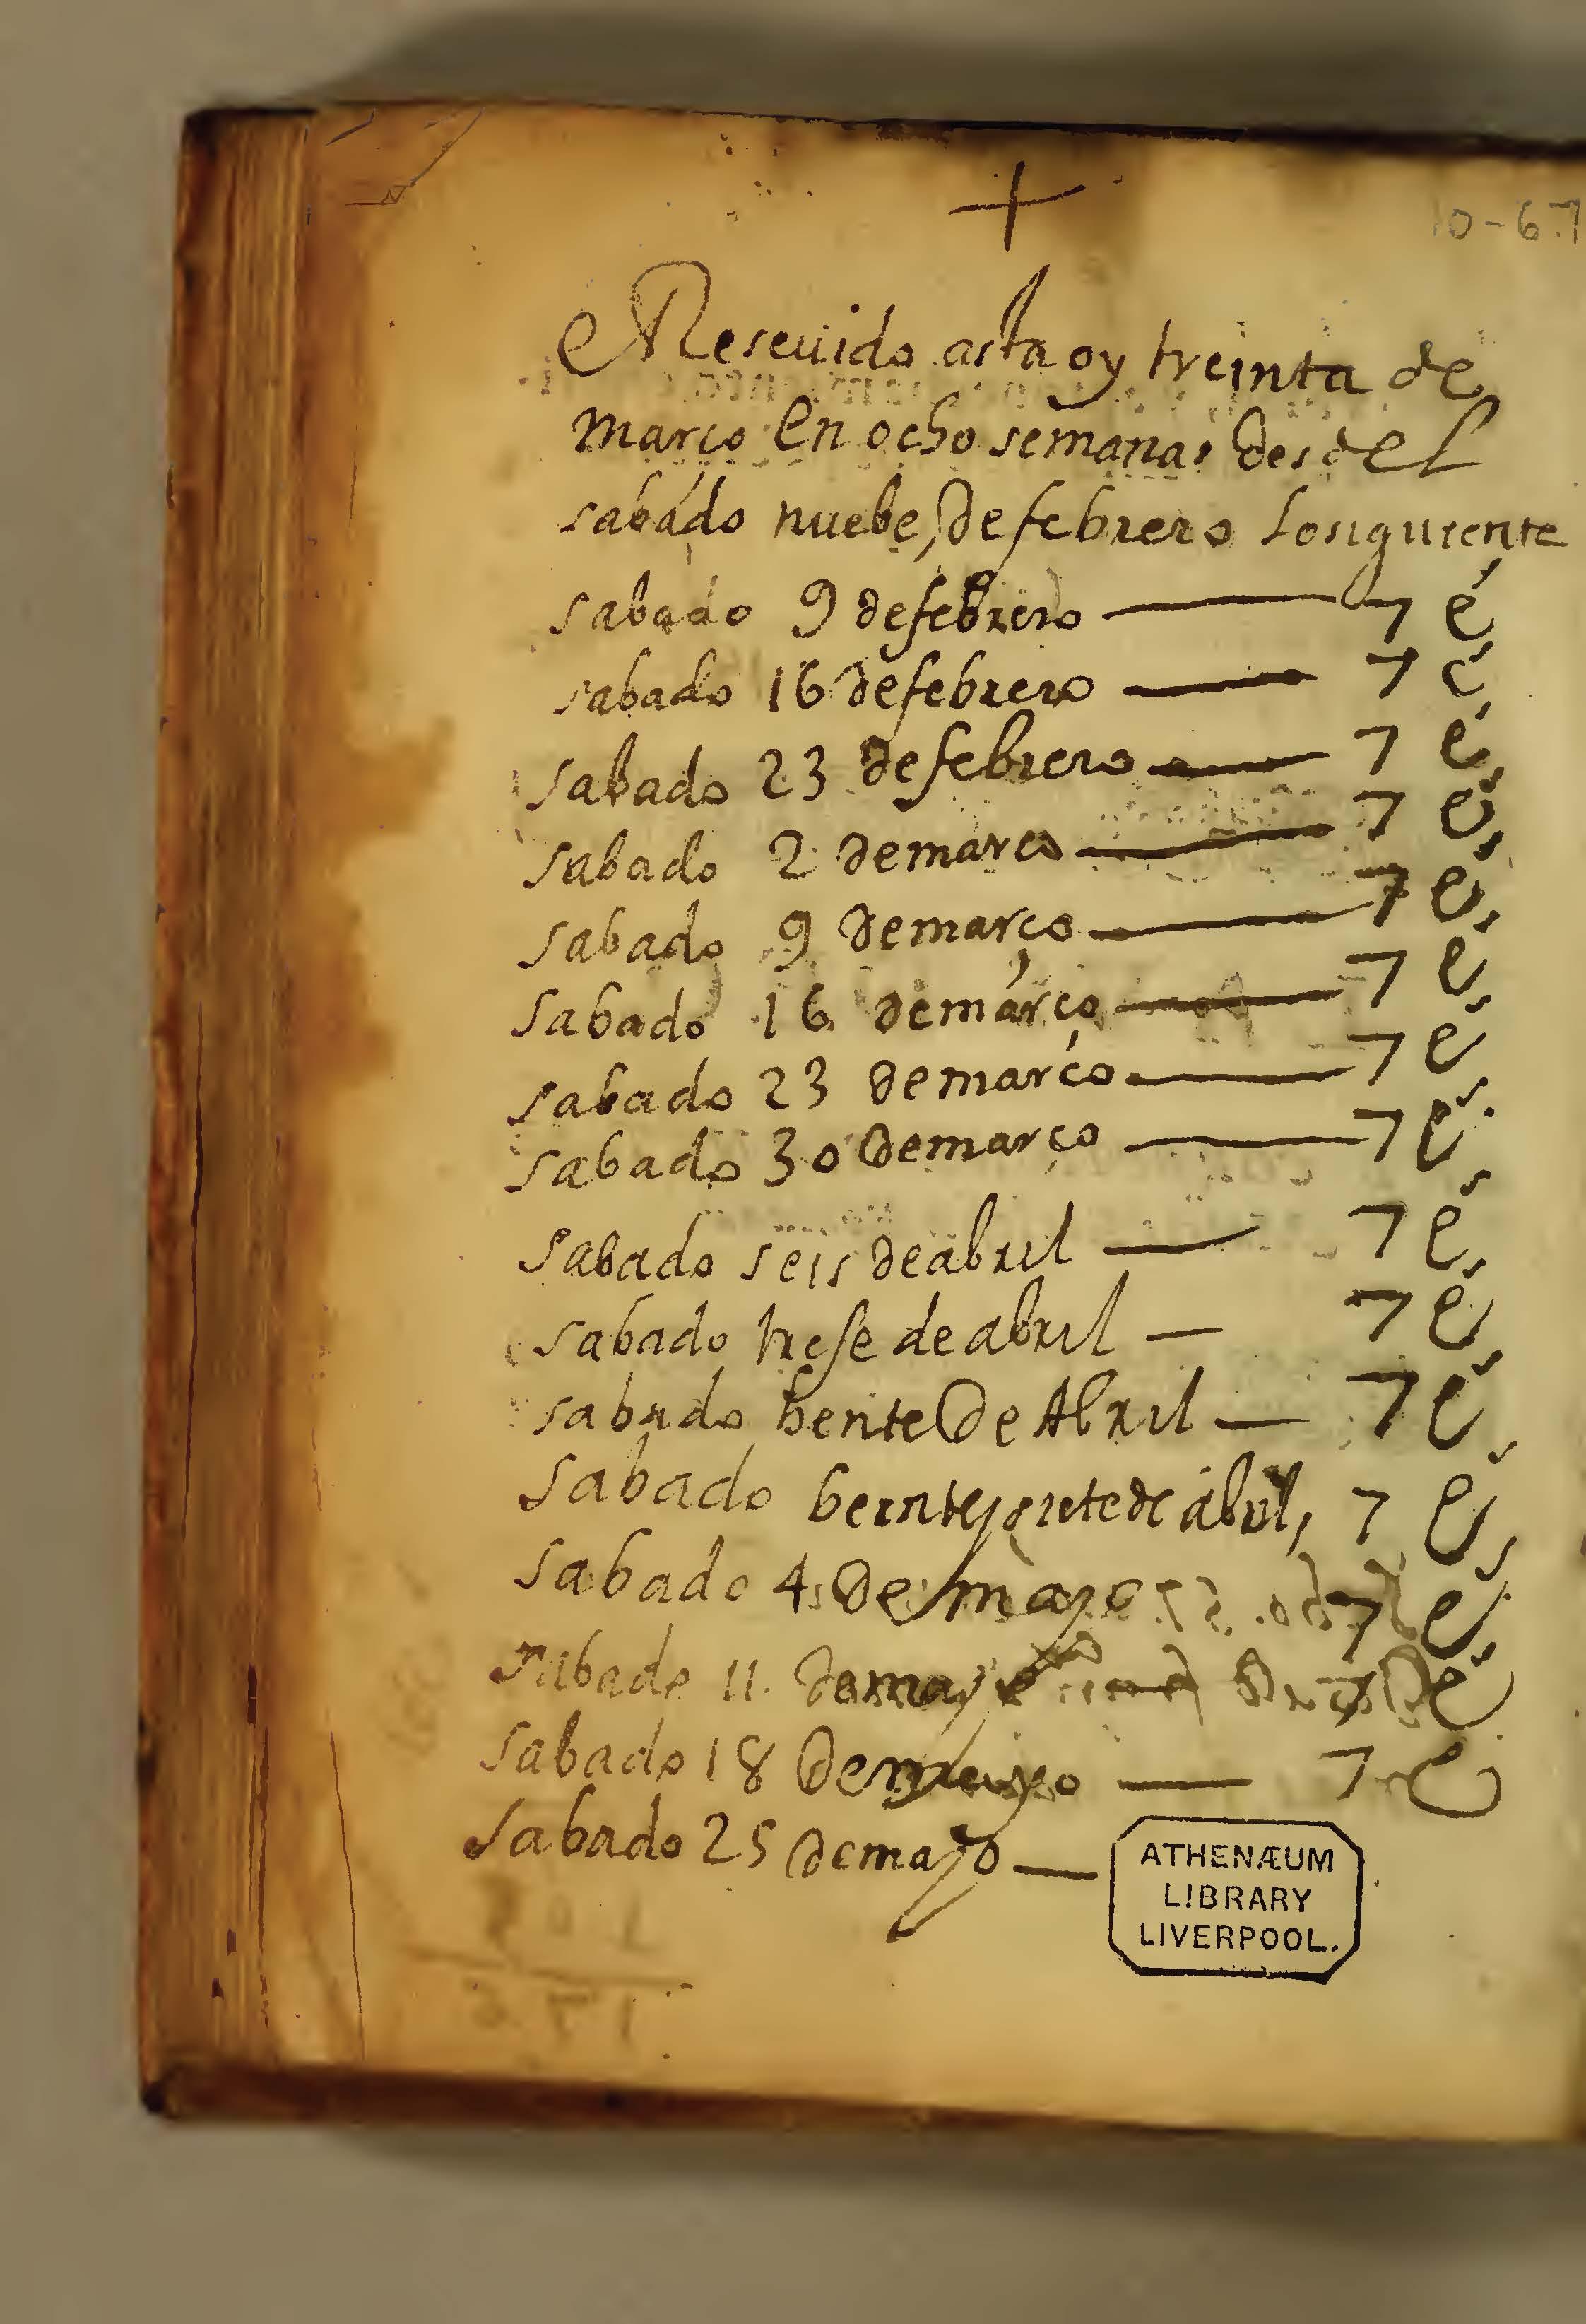 +
10-67
Reseuido asta oy treinta de
março en ocho semanas desdel
sabado nuebe de febrero losiguiente
sabado 9 de febrero — 7 e
sabado 16 de febrero — 7 e
sabado 23 de febrero — 7 e
sabado 2 de março — 7 e
sabado 9 de março — 7 e
sabado 16 de março — 7 e
sabado 23 de março — 7 e
sabado 30 de março — 7 e
sabado seis de abril — 7 e
sabado trese de abril — 7 e
sabado bente de Abril — 7 e
sabado beinteysiete de abril, 7 e
sabado 4 de mayo 7 e
sabado 11 de mayo 7 e
sabado 18 de mayo — 7 e
sabado 25 de mayo —
ATHENÆUM
LIBRARY
LIVERPOOL.